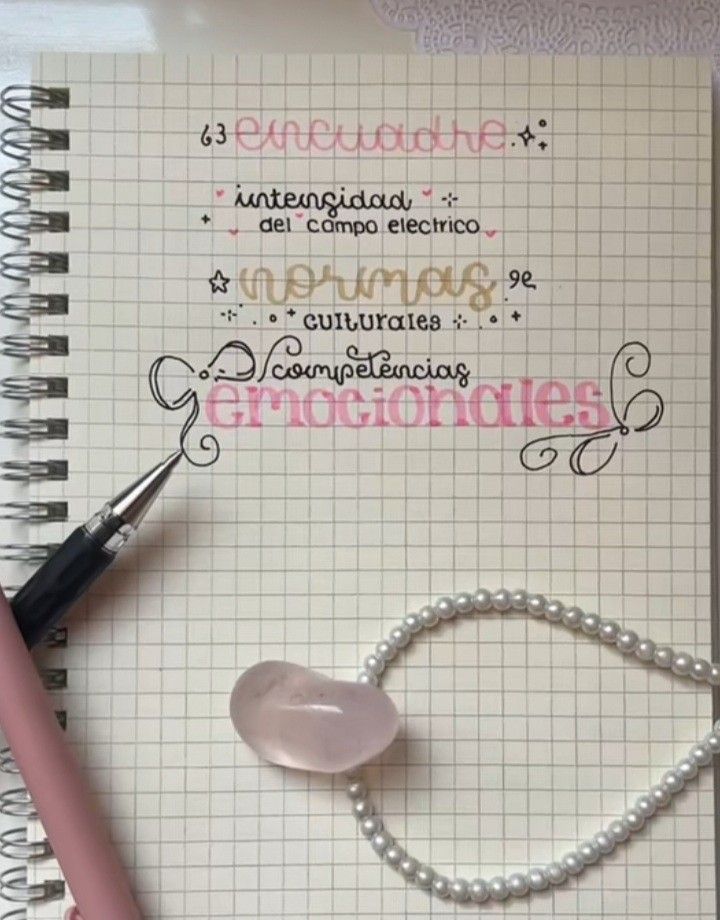 encuadre
intensidad
del campo electrico
normas
culturales
competencias
emocionales